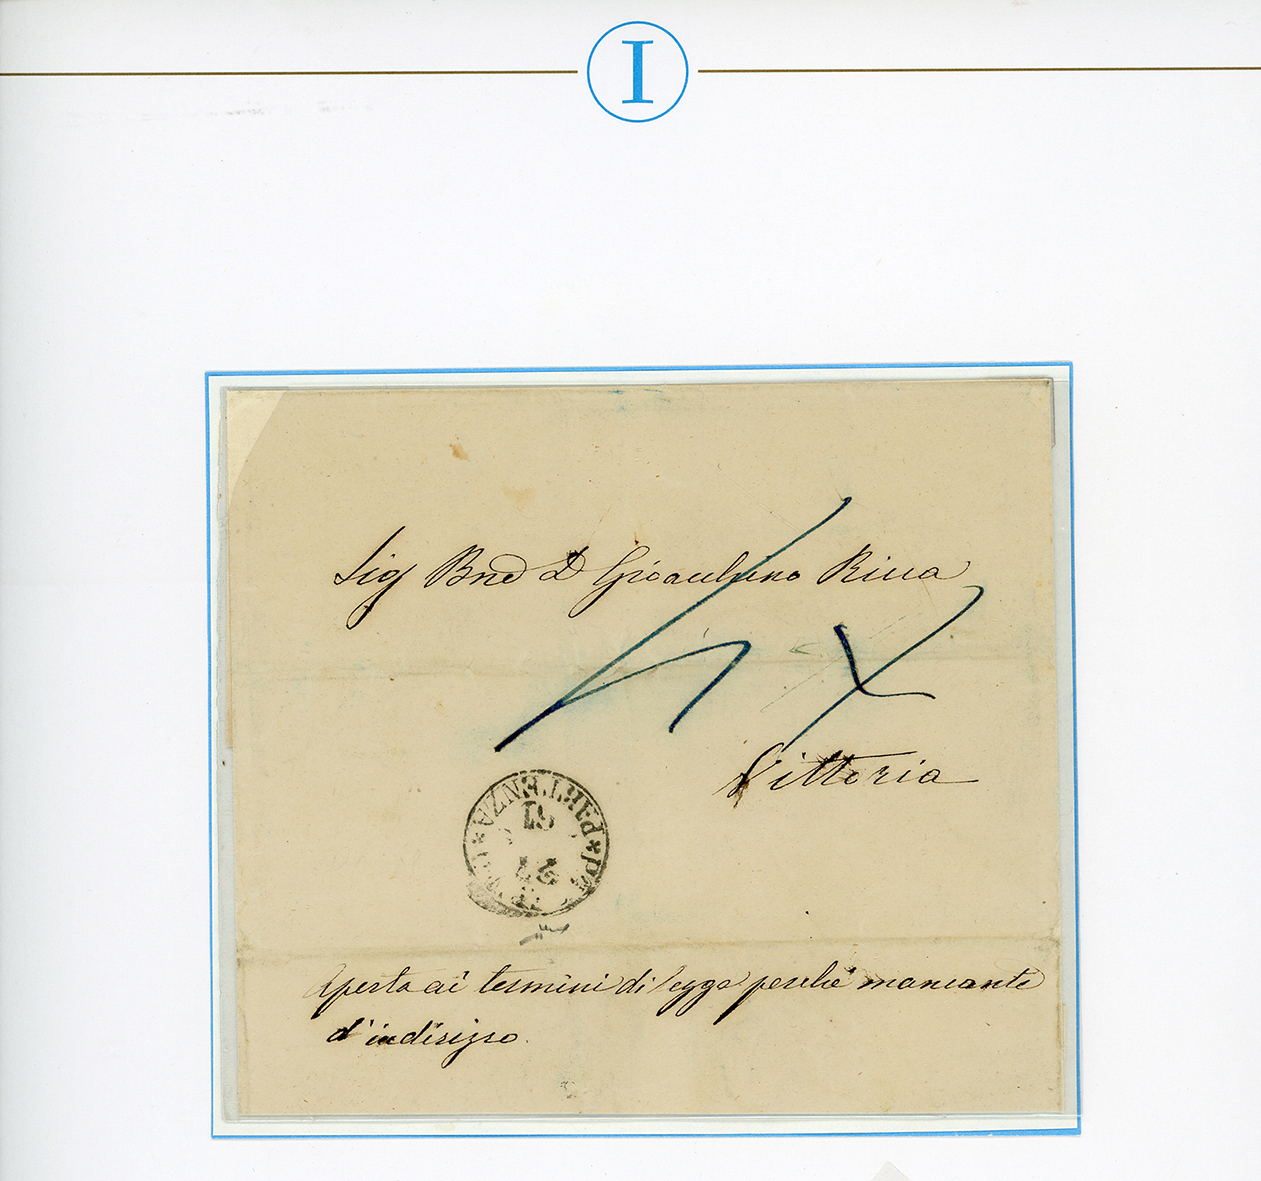 I
Sig Bne D Gioachino Ricca
Vittoria
PARTENZA
Aperta ai termini di legge perchè mancante
d'indirizzo.